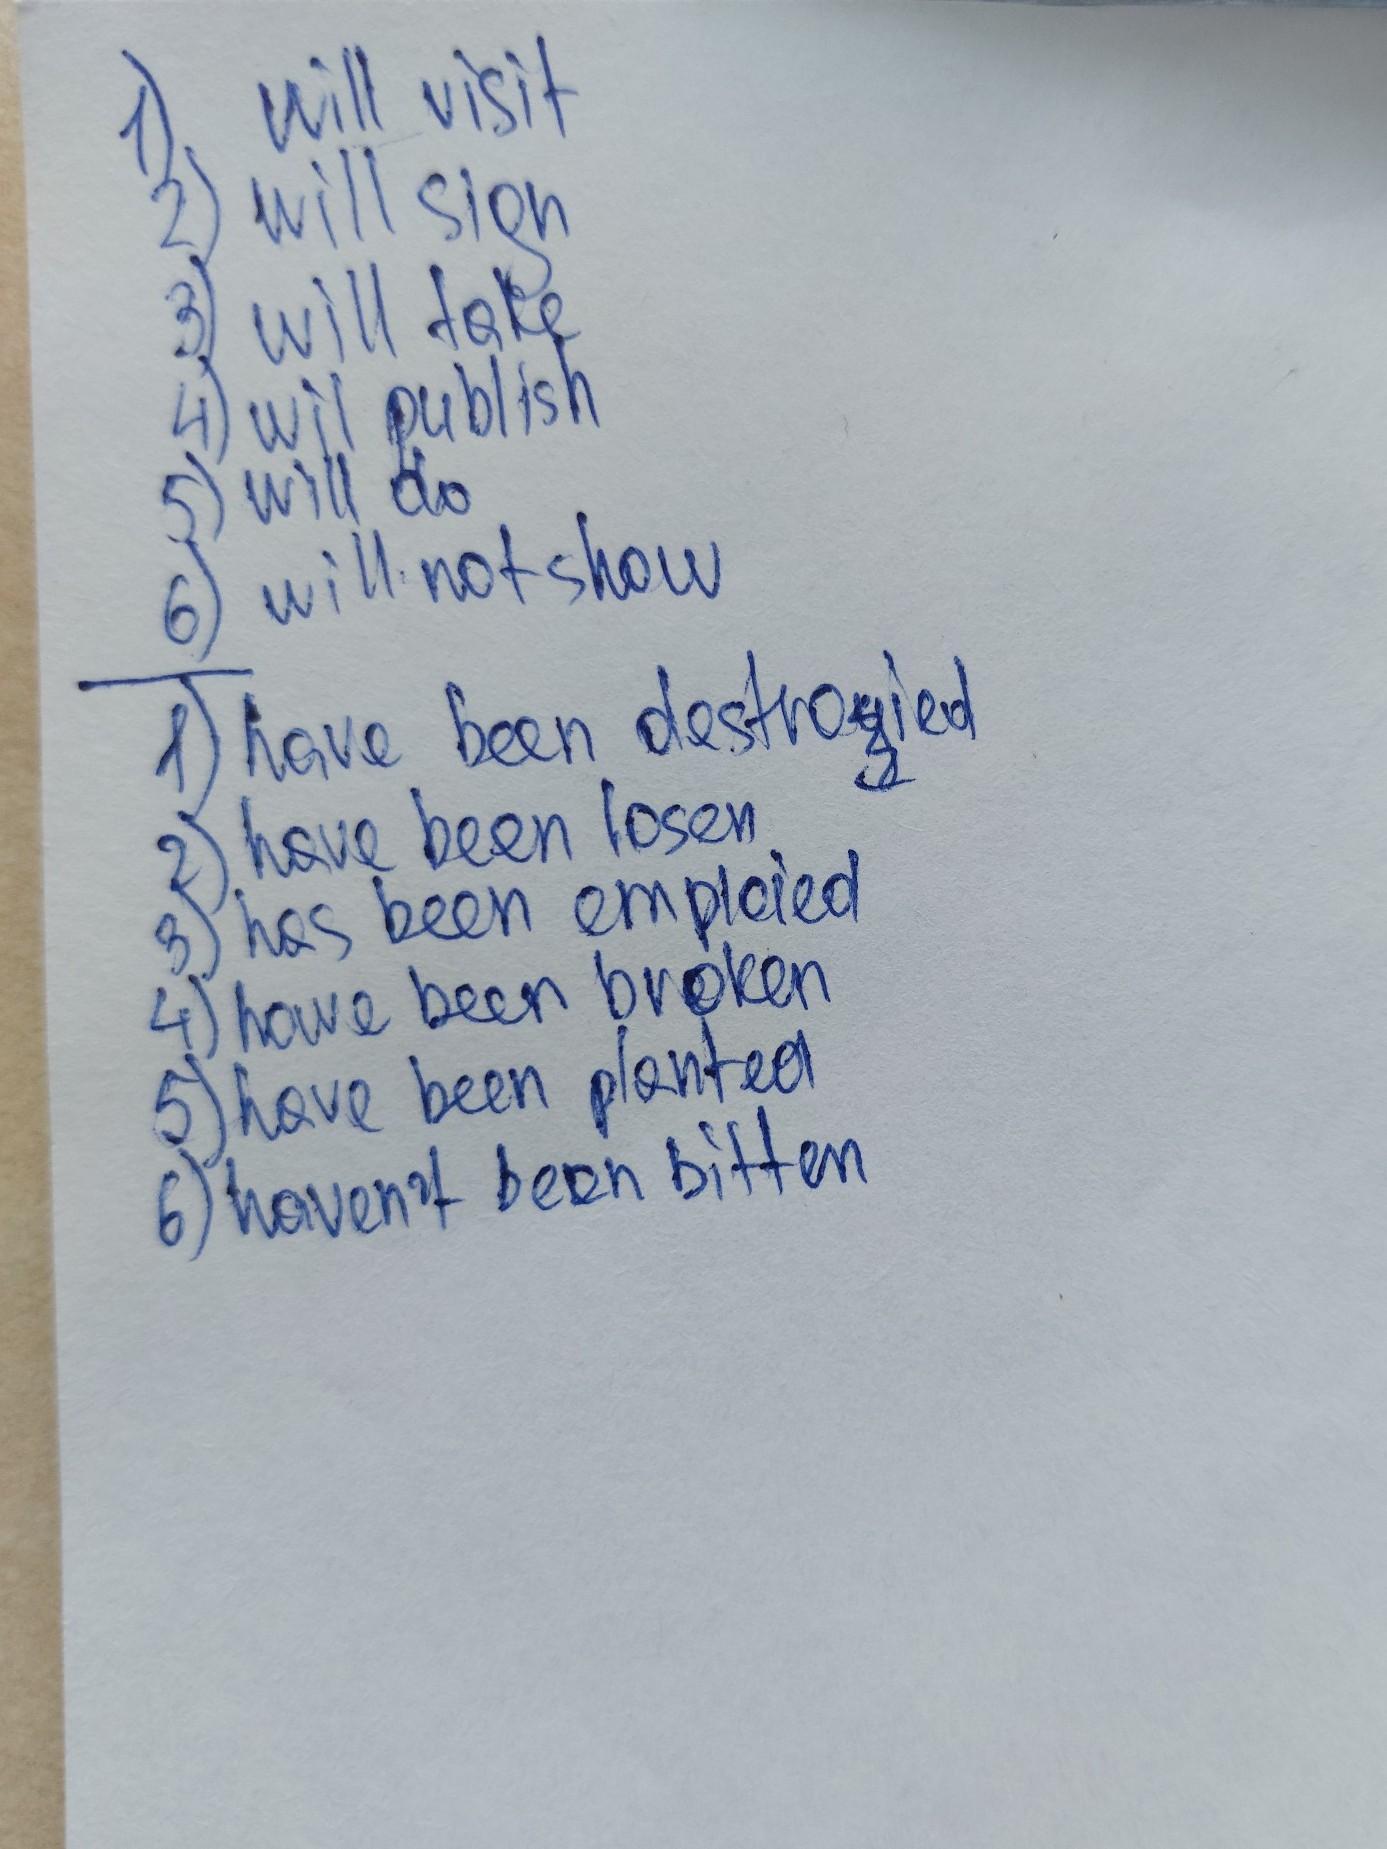 1) will visit
2) will sign
3) will take
4) wil publish
5) will do
6) will not show
1) have been destroyied
2) have been losen
3) has been emploied
4) have been broken
5) have been planted
6) haven't been bitten